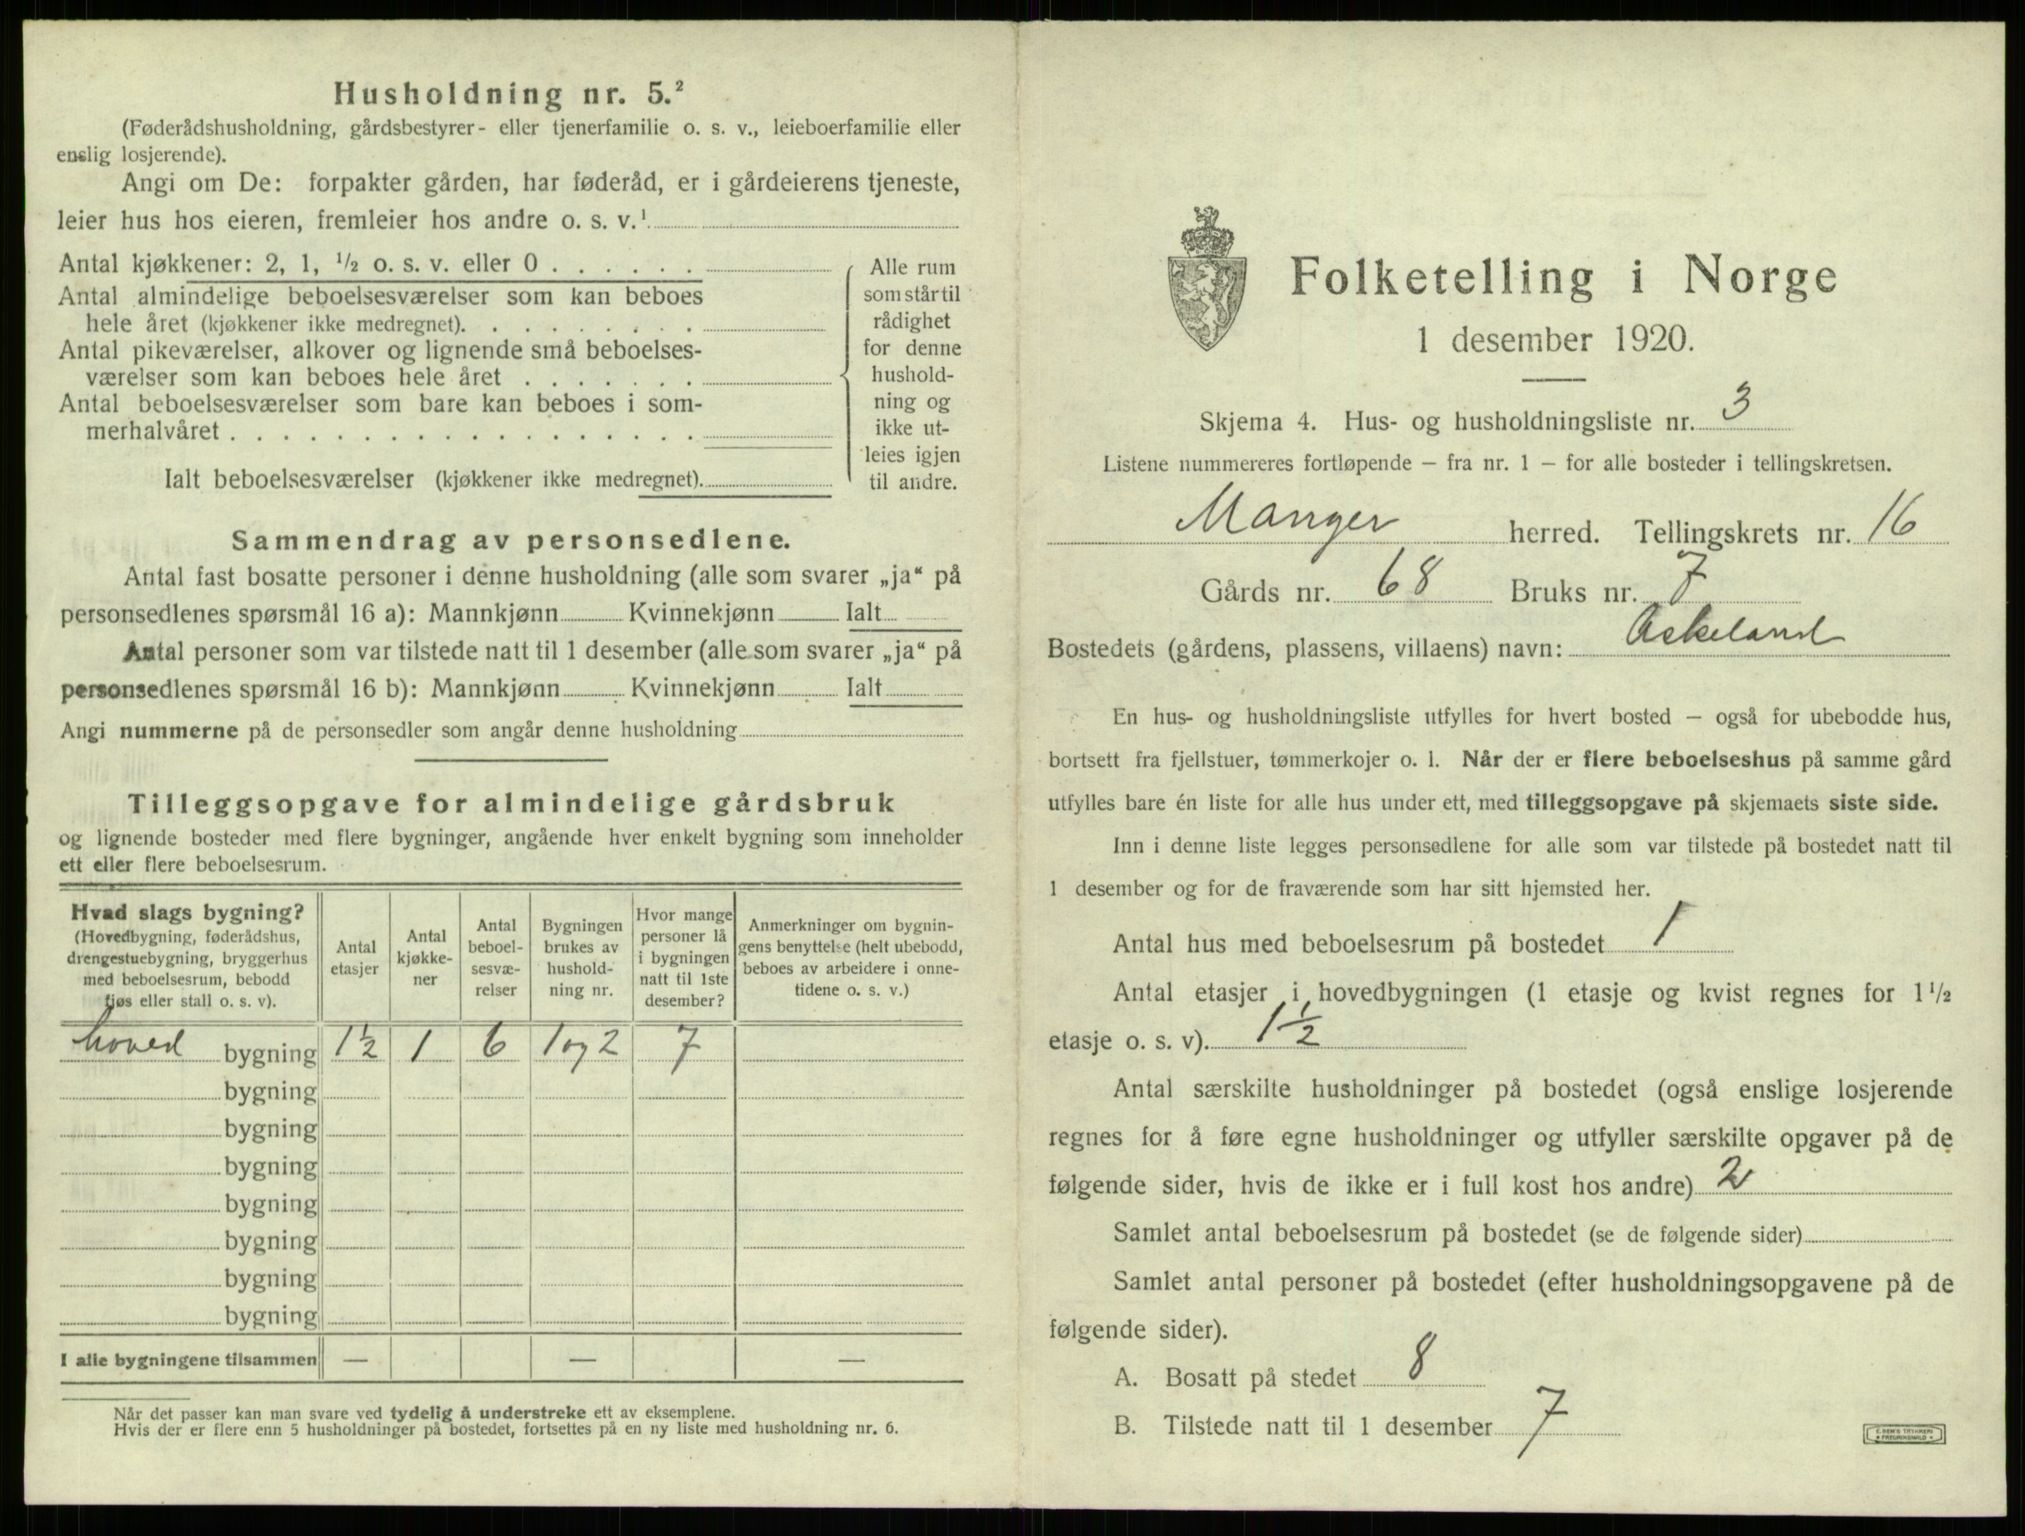 Husholdning nr. 5.²
(Føderådshusholdning, gårdsbestyrer- eller tjenerfamilie o. s. v., leieboerfamilie eller
enslig losjerende).
Angi om De: forpakter gården, har føderåd, er i gårdeierens tjeneste,
leier hus hos eieren, fremleier hos andre o. s. v.¹
Antal kjøkkener: 2, 1, ½ o. s. v. eller 0 . . . . . .
Antal almindelige beboelsesværelser som kan beboes
hele året (kjøkkener ikke medregnet). . . . . . . . .
Antal pikeværelser, alkover og lignende små beboelses-
værelser som kan beboes hele året . . . . . . .
Antal beboelsesværelser som bare kan beboes i som-
merhalvåret . . . . . . . . . . . . . . . . . .
Ialt beboelsesværelser (kjøkkener ikke medregnet).
Alle rum
som står til
rådighet
for denne
hushold-
ning og
ikke ut-
leies igjen
til andre.
Sammendrag av personsedlene.
Antal fast bosatte personer i denne husholdning (alle som svarer „ja“ på
personsedlenes spørsmål 16 a): Mannkjønn Kvinnekjønn Ialt
Antal personer som var tilstede natt til 1 desember (alle som svarer „ja“ på
personsedlenes spørsmål 16 b): Mannkjønn Kvinnekjønn Ialt
Angi nummerne på de personsedler som angår denne husholdning
Tilleggsopgave for almindelige gårdsbruk
og lignende bosteder med flere bygninger, angående hver enkelt bygning som inneholder
ett eller flere beboelsesrum.
Hvad slags bygning?
(Hovedbygning, føderådshus,
drengestuebygning, bryggerhus
med beboelsesrum, bebodd
fjøs eller stall o. s. v).
Antal
etasjer
Antal
kjøkke-
ner
Antal
beboel-
sesvæ-
relser
Bygningen
brukes av
hushold-
ning nr.
Hvor mange
personer lå
i bygningen
natt til 1ste
desember?
Anmerkninger om bygnin-
gens benyttelse (helt ubebodd,
beboes av arbeidere i onne-
tidene o. s. v.)
hoved bygning 1½ 1 6 1 og 2 7
bygning
bygning
bygning
bygning
bygning
bygning
bygning
I alle bygningene tilsammen — — —
Når det passer kan man svare ved tydelig å understreke ett av eksemplene.
Hvis der er flere enn 5 husholdninger på bostedet, fortsettes på en ny liste med husholdning nr. 6.
Folketelling i Norge
1 desember 1920.
Skjema 4. Hus- og husholdningsliste nr. 3
Listene nummereres fortløpende – fra nr. 1 – for alle bosteder i tellingskretsen.
Manger herred. Tellingskrets nr. 16
Gårds nr. 68 Bruks nr. 7
Bostedets (gårdens, plassens, villaens) navn: Askeland
En hus- og husholdningsliste utfylles for hvert bosted – også for ubebodde hus,
bortsett fra fjellstuer, tømmerkojer o. l. Når der er flere beboelseshus på samme gård
utfylles bare én liste for alle hus under ett, med tilleggsopgave på skjemaets siste side.
Inn i denne liste legges personsedlene for alle som var tilstede på bostedet natt til
1 desember og for de fraværende som har sitt hjemsted her.
Antal hus med beboelsesrum på bostedet 1
Antal etasjer i hovedbygningen (1 etasje og kvist regnes for 1½
etasje o. s. v). 1½
Antal særskilte husholdninger på bostedet (også enslige losjerende
regnes for å føre egne husholdninger og utfyller særskilte opgaver på de
følgende sider, hvis de ikke er i full kost hos andre) 2
Samlet antal beboelsesrum på bostedet (se de følgende sider)
Samlet antal personer på bostedet (efter husholdningsopgavene på de
følgende sider).
A. Bosatt på stedet 8
B. Tilstede natt til 1 desember 7